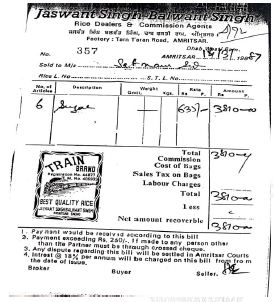 Jaswant Singh Balwant Singh
Rice Dealers & Commission Agents
Factory : Tarn Taran Road, AMRITSAR.
No. 357
AMRITSAR
Sold to M/s
Rice L. No. S. T. L. No.
No. of Articles Description Weight Rate Amount
Rs. P. Rs. P.
6 635/- 3810-00
Total 3810-00
Commission
Cost of Bags
Sales Tax on Bags
Labour Charges
Total 3810-00
Less
Net amount recoverble 3810-00
TRAIN
BRAND
BEST QUALITY RICE
JASWANT SINGH BALWANT SINGH
1. Payment would be received according to this bill
2. Payment exceeding Rs. 250/-. If made to any person other
than the Partner must be through crossed cheque.
3. Any dispute regarding this bill will be settled in Amritsar Courts
4. Intrest @ 18% per annum will be charged on this bill from
the date of issue.
Broker Buyer Seller.